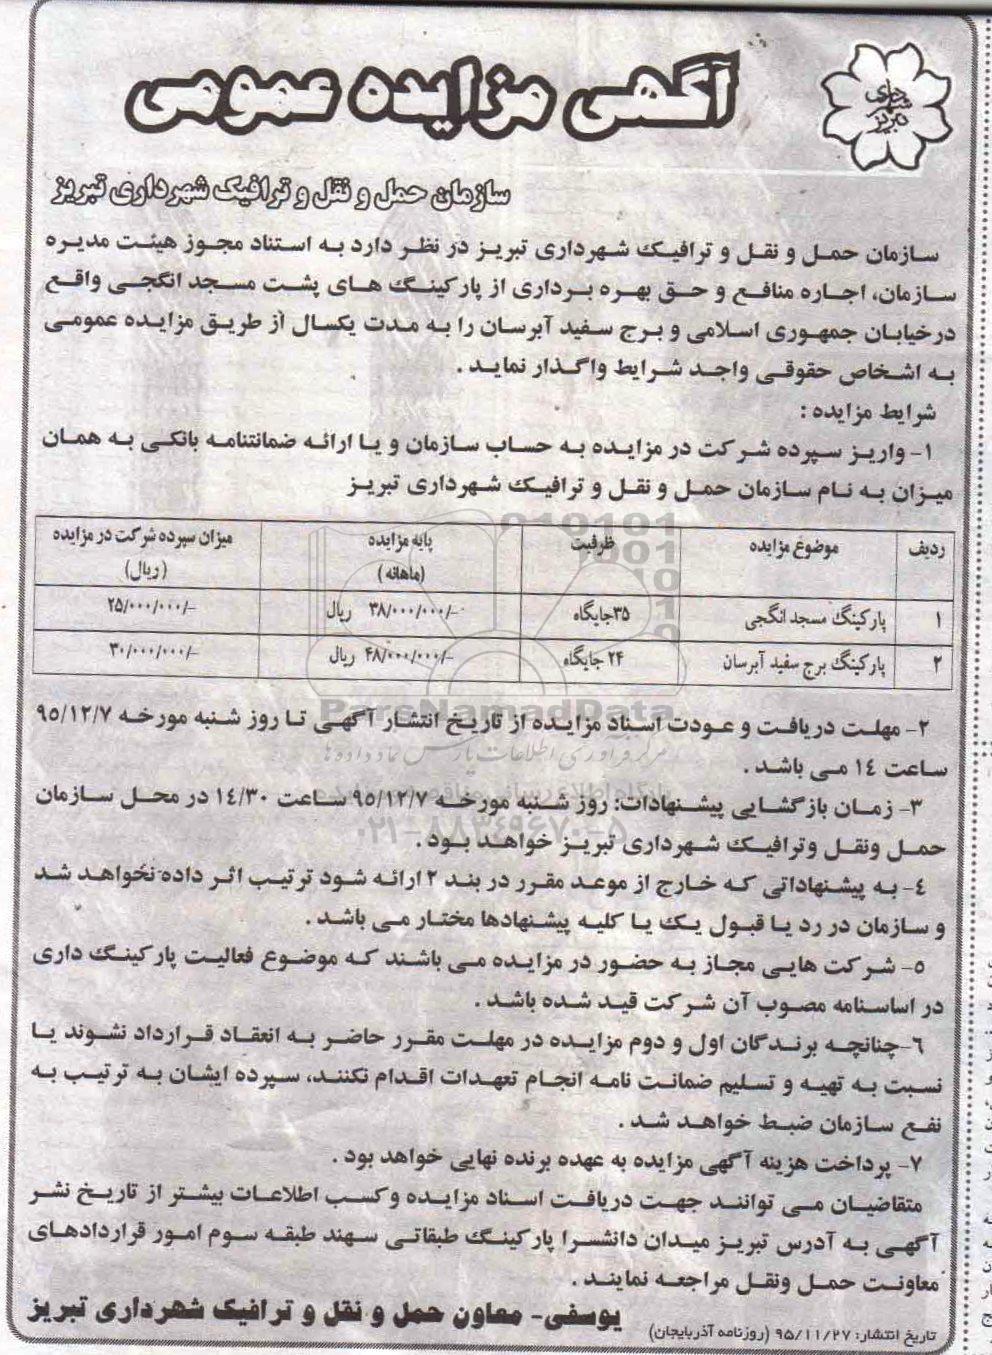 شهرداری تبریز
آگهی مزایده عمومی
سازمان حمل و نقل و ترافیک شهرداری تبریز
سازمان حمل و نقل و ترافیک شهرداری تبریز در نظر دارد به استناد مجوز هیئت مدیره
سازمان، اجاره منافع و حق بهره برداری از پارکینگ های پشت مسجد انگجی واقع
درخیابان جمهوری اسلامی و برج سفید آبرسان را به مدت یکسال از طریق مزایده عمومی
به اشخاص حقوقی واجد شرایط واگذار نماید .
شرایط مزایده :
۱- واریز سپرده شرکت در مزایده به حساب سازمان و یا ارائه ضمانتنامه بانکی به همان
میزان به نام سازمان حمل و نقل و ترافیک شهرداری تبریز
ردیف موضوع مزایده ظرفیت پایه مزایده (ماهانه) میزان سپرده شرکت در مزایده (ریال)
۱ پارکینگ مسجد انگجی ۳۵جایگاه ۳۸/۰۰۰/۰۰۰/- ریال ۲۵/۰۰۰/۰۰۰/-
۲ پارکینگ برج سفید آبرسان ۲۴ جایگاه ۴۸/۰۰۰/۰۰۰/- ریال ۳۰/۰۰۰/۰۰۰/-
ParsNamadData
۲- مهلت دریافت و عودت اسناد مزایده از تاریخ انتشار آگهی تا روز شنبه مورخه ۹۵/۱۲/۷
مرکز فرآوری اطلاعات پارس نماد داده ها
ساعت ۱٤ می باشد .
۳- زمان بازگشایی پیشنهادات: روز شنبه مورخه ۹۵/۱۲/۷ ساعت ۱٤/۳۰ در محل سازمان
۰۲۱-۸۸۳۴۹۶۷۰-۵
حمل ونقل وترافیک شهرداری تبریز خواهد بود .
٤- به پیشنهاداتی که خارج از موعد مقرر در بند ۲ ارائه شود ترتیب اثر داده نخواهد شد
و سازمان در رد یا قبول یک یا کلیه پیشنهادها مختار می باشد .
۵- شرکت هایی مجاز به حضور در مزایده می باشند که موضوع فعالیت پارکینگ داری
در اساسنامه مصوب آن شرکت قید شده باشد .
٦-چنانچه برندگان اول و دوم مزایده در مهلت مقرر حاضر به انعقاد قرارداد نشوند یا
نسبت به تهیه و تسلیم ضمانت نامه انجام تعهدات اقدام نکنند، سپرده ایشان به ترتیب به
نفع سازمان ضبط خواهد شد .
۷- پرداخت هزینه آگهی مزایده به عهده برنده نهایی خواهد بود .
متقاضیان می توانند جهت دریافت اسناد مزایده وکسب اطلاعات بیشتر از تاریخ نشر
آگهی به آدرس تبریز میدان دانشسرا پارکینگ طبقاتی سهند طبقه سوم امور قراردادهای
معاونت حمل ونقل مراجعه نمایند .
یوسفی- معاون حمل و نقل و ترافیک شهرداری تبریز
تاریخ انتشار: ۹۵/۱۱/۲۷ (روزنامه آذربایجان)